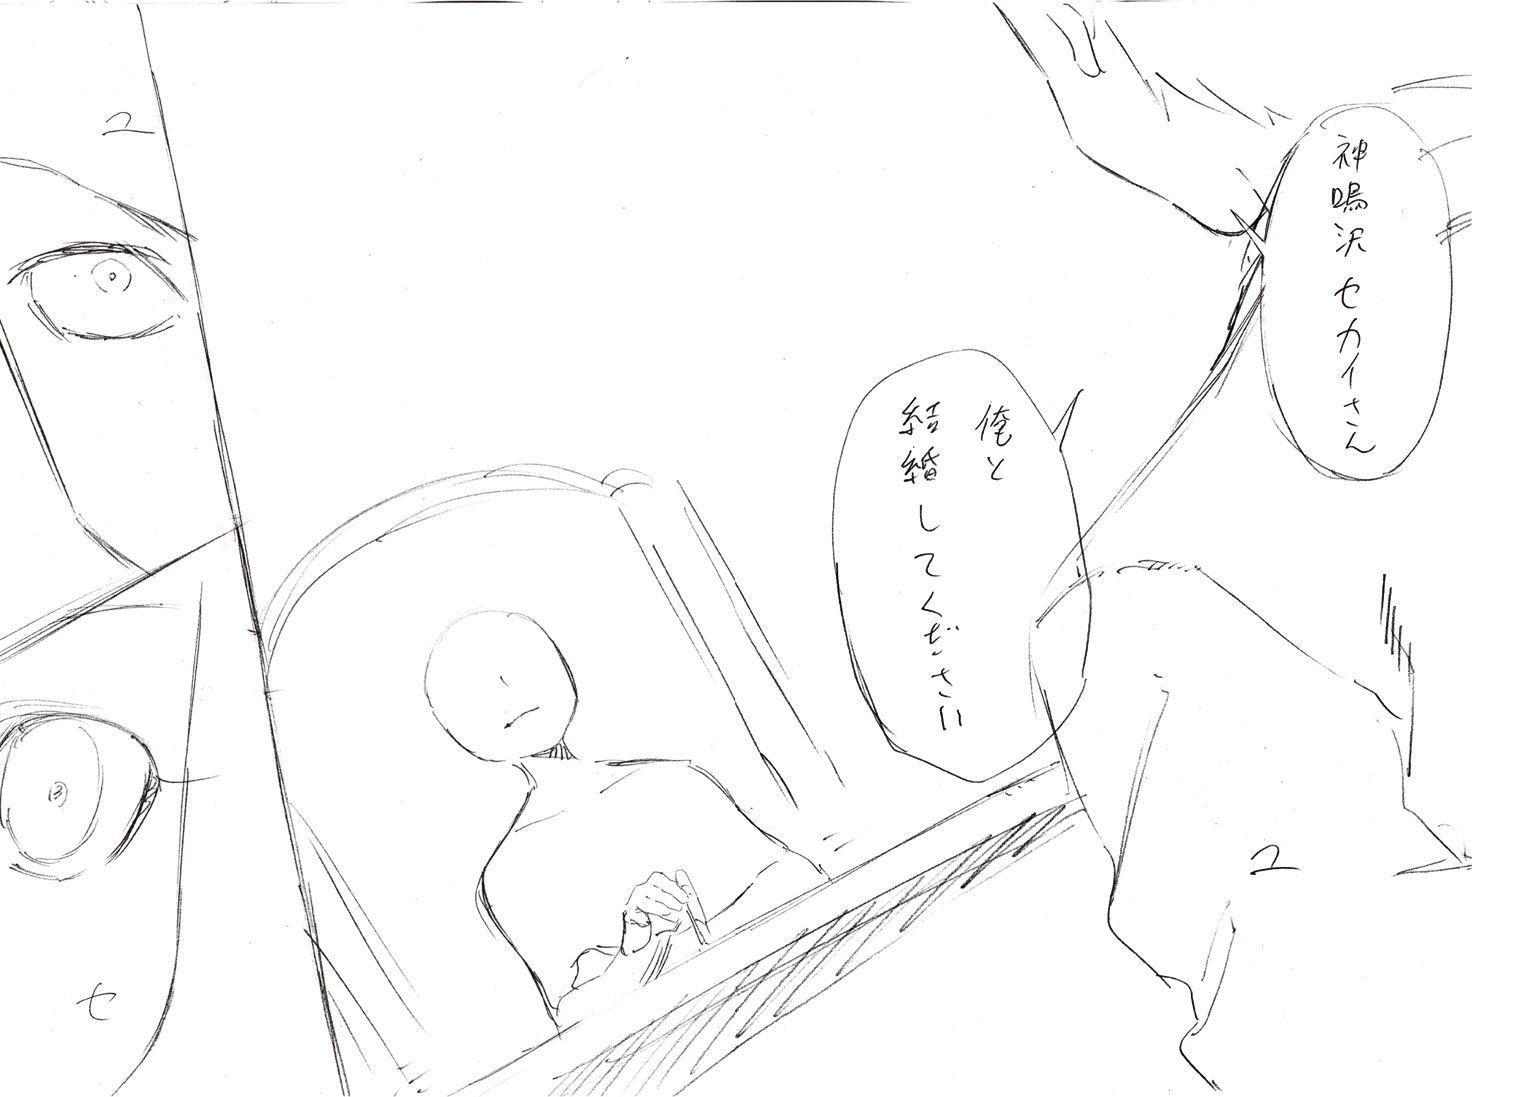 神鳴沢セカイさん
俺と
結婚してください
ユ
ユ
セ